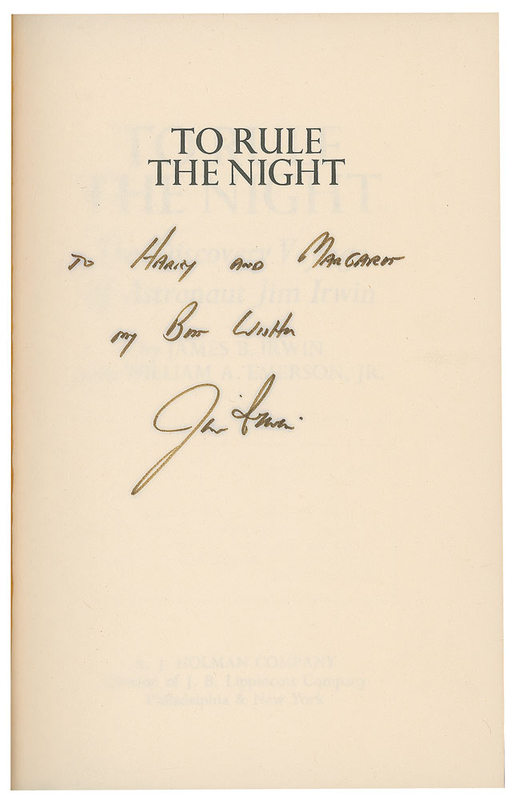 TO RULE
THE NIGHT
To Harry and Margaret
my Best Wishes
Jim Irwin
The Discovery Voyage
of Astronaut Jim Irwin
JAMES B. IRWIN
WILLIAM A. EMERSON, JR.
A. J. HOLMAN COMPANY
division of J. B. Lippincott Company
Philadelphia & New York